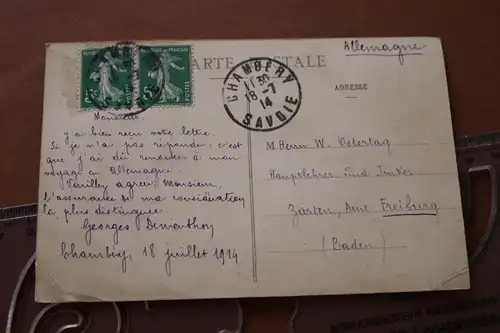 CARTE POSTALE
Allemagne
ADRESSE
CHAMBERY
11 30
18-7
14
SAVOIE
5c
POSTES
5c
POSTES
Monsieur.
J'ai bien reçu votre lettre.
Si je n'ai pas répondu, c'est
que j'ai dû renoncer à mon
voyage en Allemagne.
Veuillez agréer, Monsieur,
l'assurance de ma considération
la plus distinguée.
Georges
Chambéry, 18 juillet 1914
M Herrn W. Ostertag
Hauptlehrer und Imker
Zarten, Amt Freiburg
(Baden)